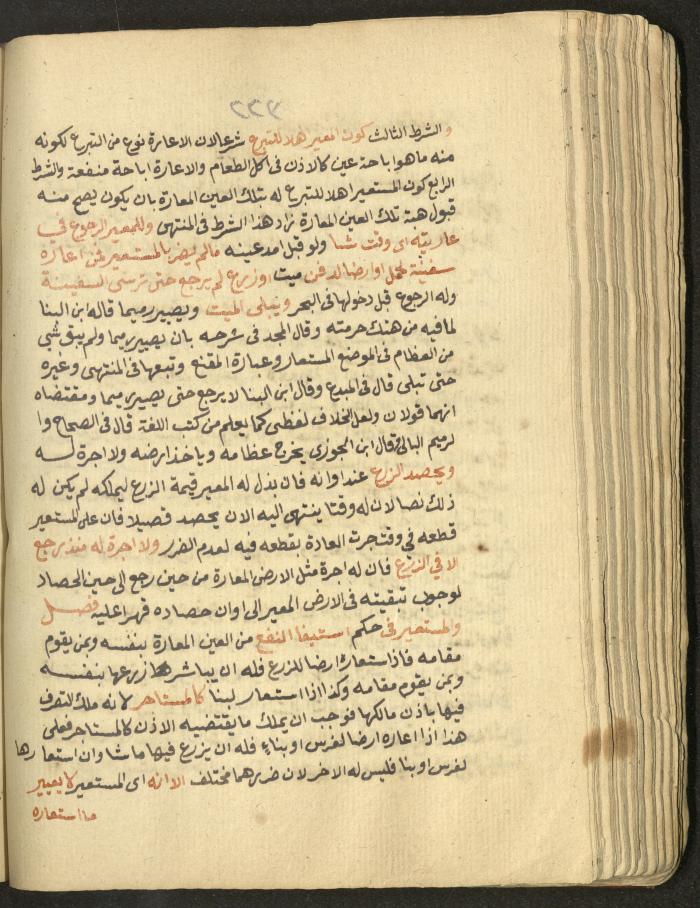 ٢٦٦
والشرط الثالث كون المعير اهلا للتبرع شرعا لان الاعارة نوع من التبرع لكونه
منه ما هو اباحة عين كالاذن في اكل الطعام والاعارة اباحة منفعة والشرط
الرابع كون المستعير اهلا للتبرع له بتلك العين المعارة بان يكون يصح منه
قبول هبة تلك العين المعارة زاد هذا الشرط في المنتهى وللمعير الرجوع في
عاريته اى وقت شا ولو قبل امد عينه مالم يضر بالمستعير فمن اعاره
سفينة لحمل او ارضا لدفن ميت او زرع لم يرجع حتى ترسى السفينة
وله الرجوع قبل دخولها في البحر ويبلى الميت ويصير رميما قاله ابن البنا
لما فيه من هتك حرمته وقال المجد في شرحه بان يصير رميما ولم يبق شي
من العظام في الموضع المستعار وعبارة المقنع وتبعها في المنتهى وغيره
حتى تبلى قال في المبدع وقال ابن البنا لا يرجع حتى يصير رميما ومقتضاه
انهما قولان ولعل الخلاف لفظى كما يعلم من كتب اللغة قال في الصحاح وا
لرميم البالى وقال ابن الجوزى يخرج عظامه وياخذ ارضه ولا اجرة له
ويحصد الزرع عند اوانه فان بذل له المعير قيمة الزرع ليملكه لم يكن له
ذلك نصا لان له وقتا ينتهى اليه الا ن يحصد قصيلا فان على المستعير
قطعه في وقت جرت العادة بقطعه فيه لعدم الضرر ولا اجرة له منذ رجع
الا في الزرع فان له اجرة مثل الارض المعارة من حين رجع الى حين الحصاد
لوجوب تبقيته في الارض المعير الى اوان حصاده قهرا عليه فصل
والمستعير في حكم استيفا النفع من العين المعارة بنفسه وبمن يقوم
مقامه فاذا استعار ارضا للزرع فله ان يباشر زرعها بنفسه
وبمن يقوم مقامه وكذا اذا استعار لبنا كالمستاجر لانه ملك التصرف
فيها باذن مالكها فوجب ان يملك ما يقتضيه الاذن كالمستاجر فعلى
هذا اذا اعاره ارضا لغرس او بناء فله ان يزرع فيها ما شا وان استعارها
لغرس او بنا فليس له الاخر لان ضررهما مختلف الا انه اى المستعير لا يعير
ما استعاره